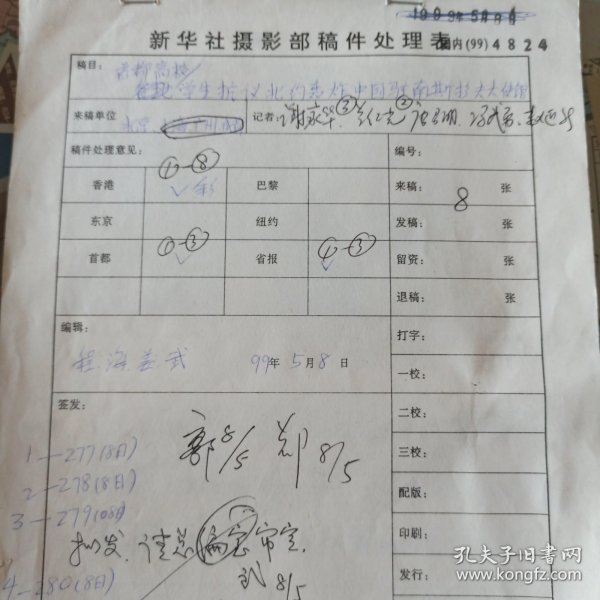 1999年5月8日
新华社摄影部稿件处理表
国内(99)4824
稿目：首都高校
学生抗议北约轰炸中国驻南斯拉夫大使馆
来稿单位
记者：
稿件处理意见：
编号：
①-⑧
香港 ✓彩 巴黎 来稿： 8 张
东京 纽约 发稿： 张
①-③ ①-③
首都 ✓ 省报 ✓ 留资： 张
退稿： 张
编辑：
99年5月8日
打字：
一校：
签发：
二校：
郭8/5 郑8/5
1—277(8日)
三校：
2—278(8日)
配版：
3—279(08日)
印刷：
拟发，请总编室审定。
8/5
4—280(8日)
发行：
孔夫子旧书网
www.kongfz.com